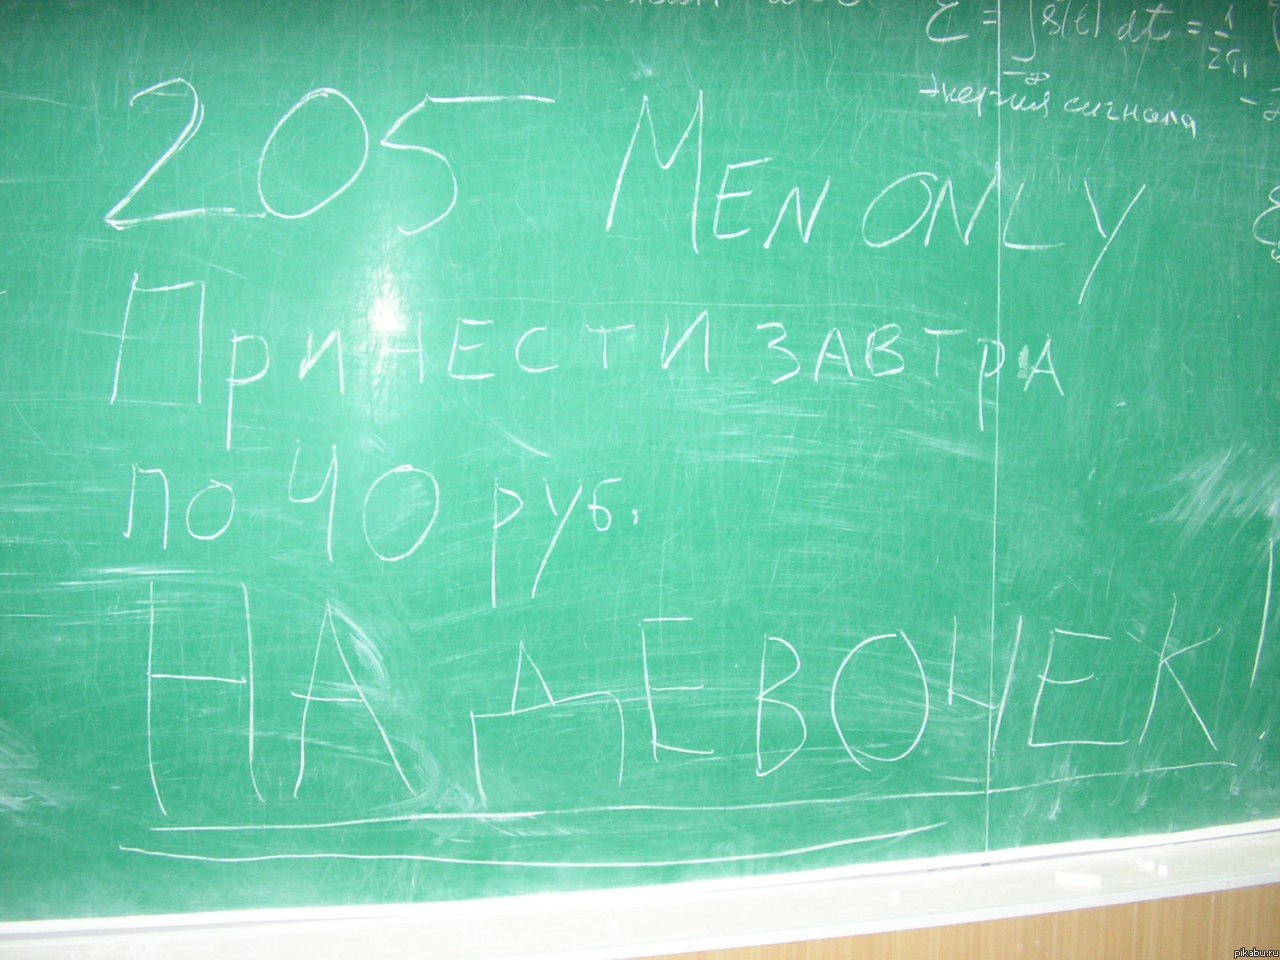 τ = ∫ s(t) dt = 1/2π
-∞
энергия сигнала
205 MEN ONLY
ПРИНЕСТИ ЗАВТРА
ПО 40 руб.
НА ДЕВОЧЕК!
pikabu.ru